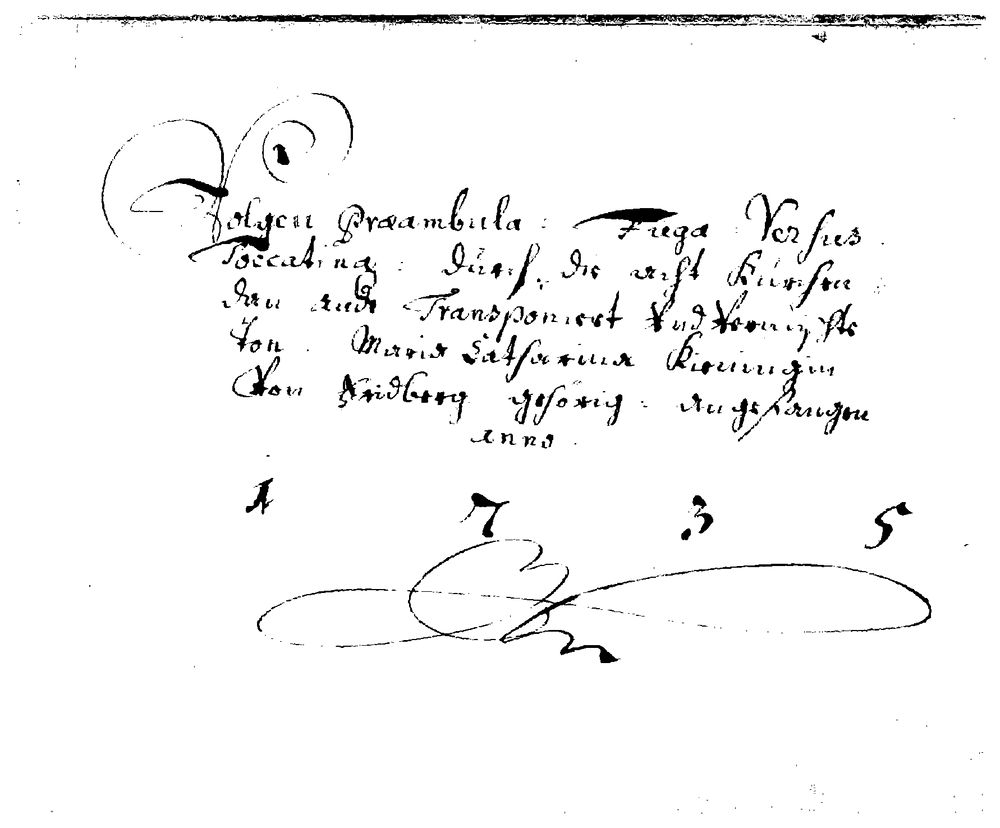 Folgen Præambula : Fuga Versus
Toccatina : durch die acht Kürchen
dan ande Transponiert Vnd Vermischte
Ton . Maria Catharina Kieningin
Von Fridberg gehörig : angefangen
anno .
1 7 3 5